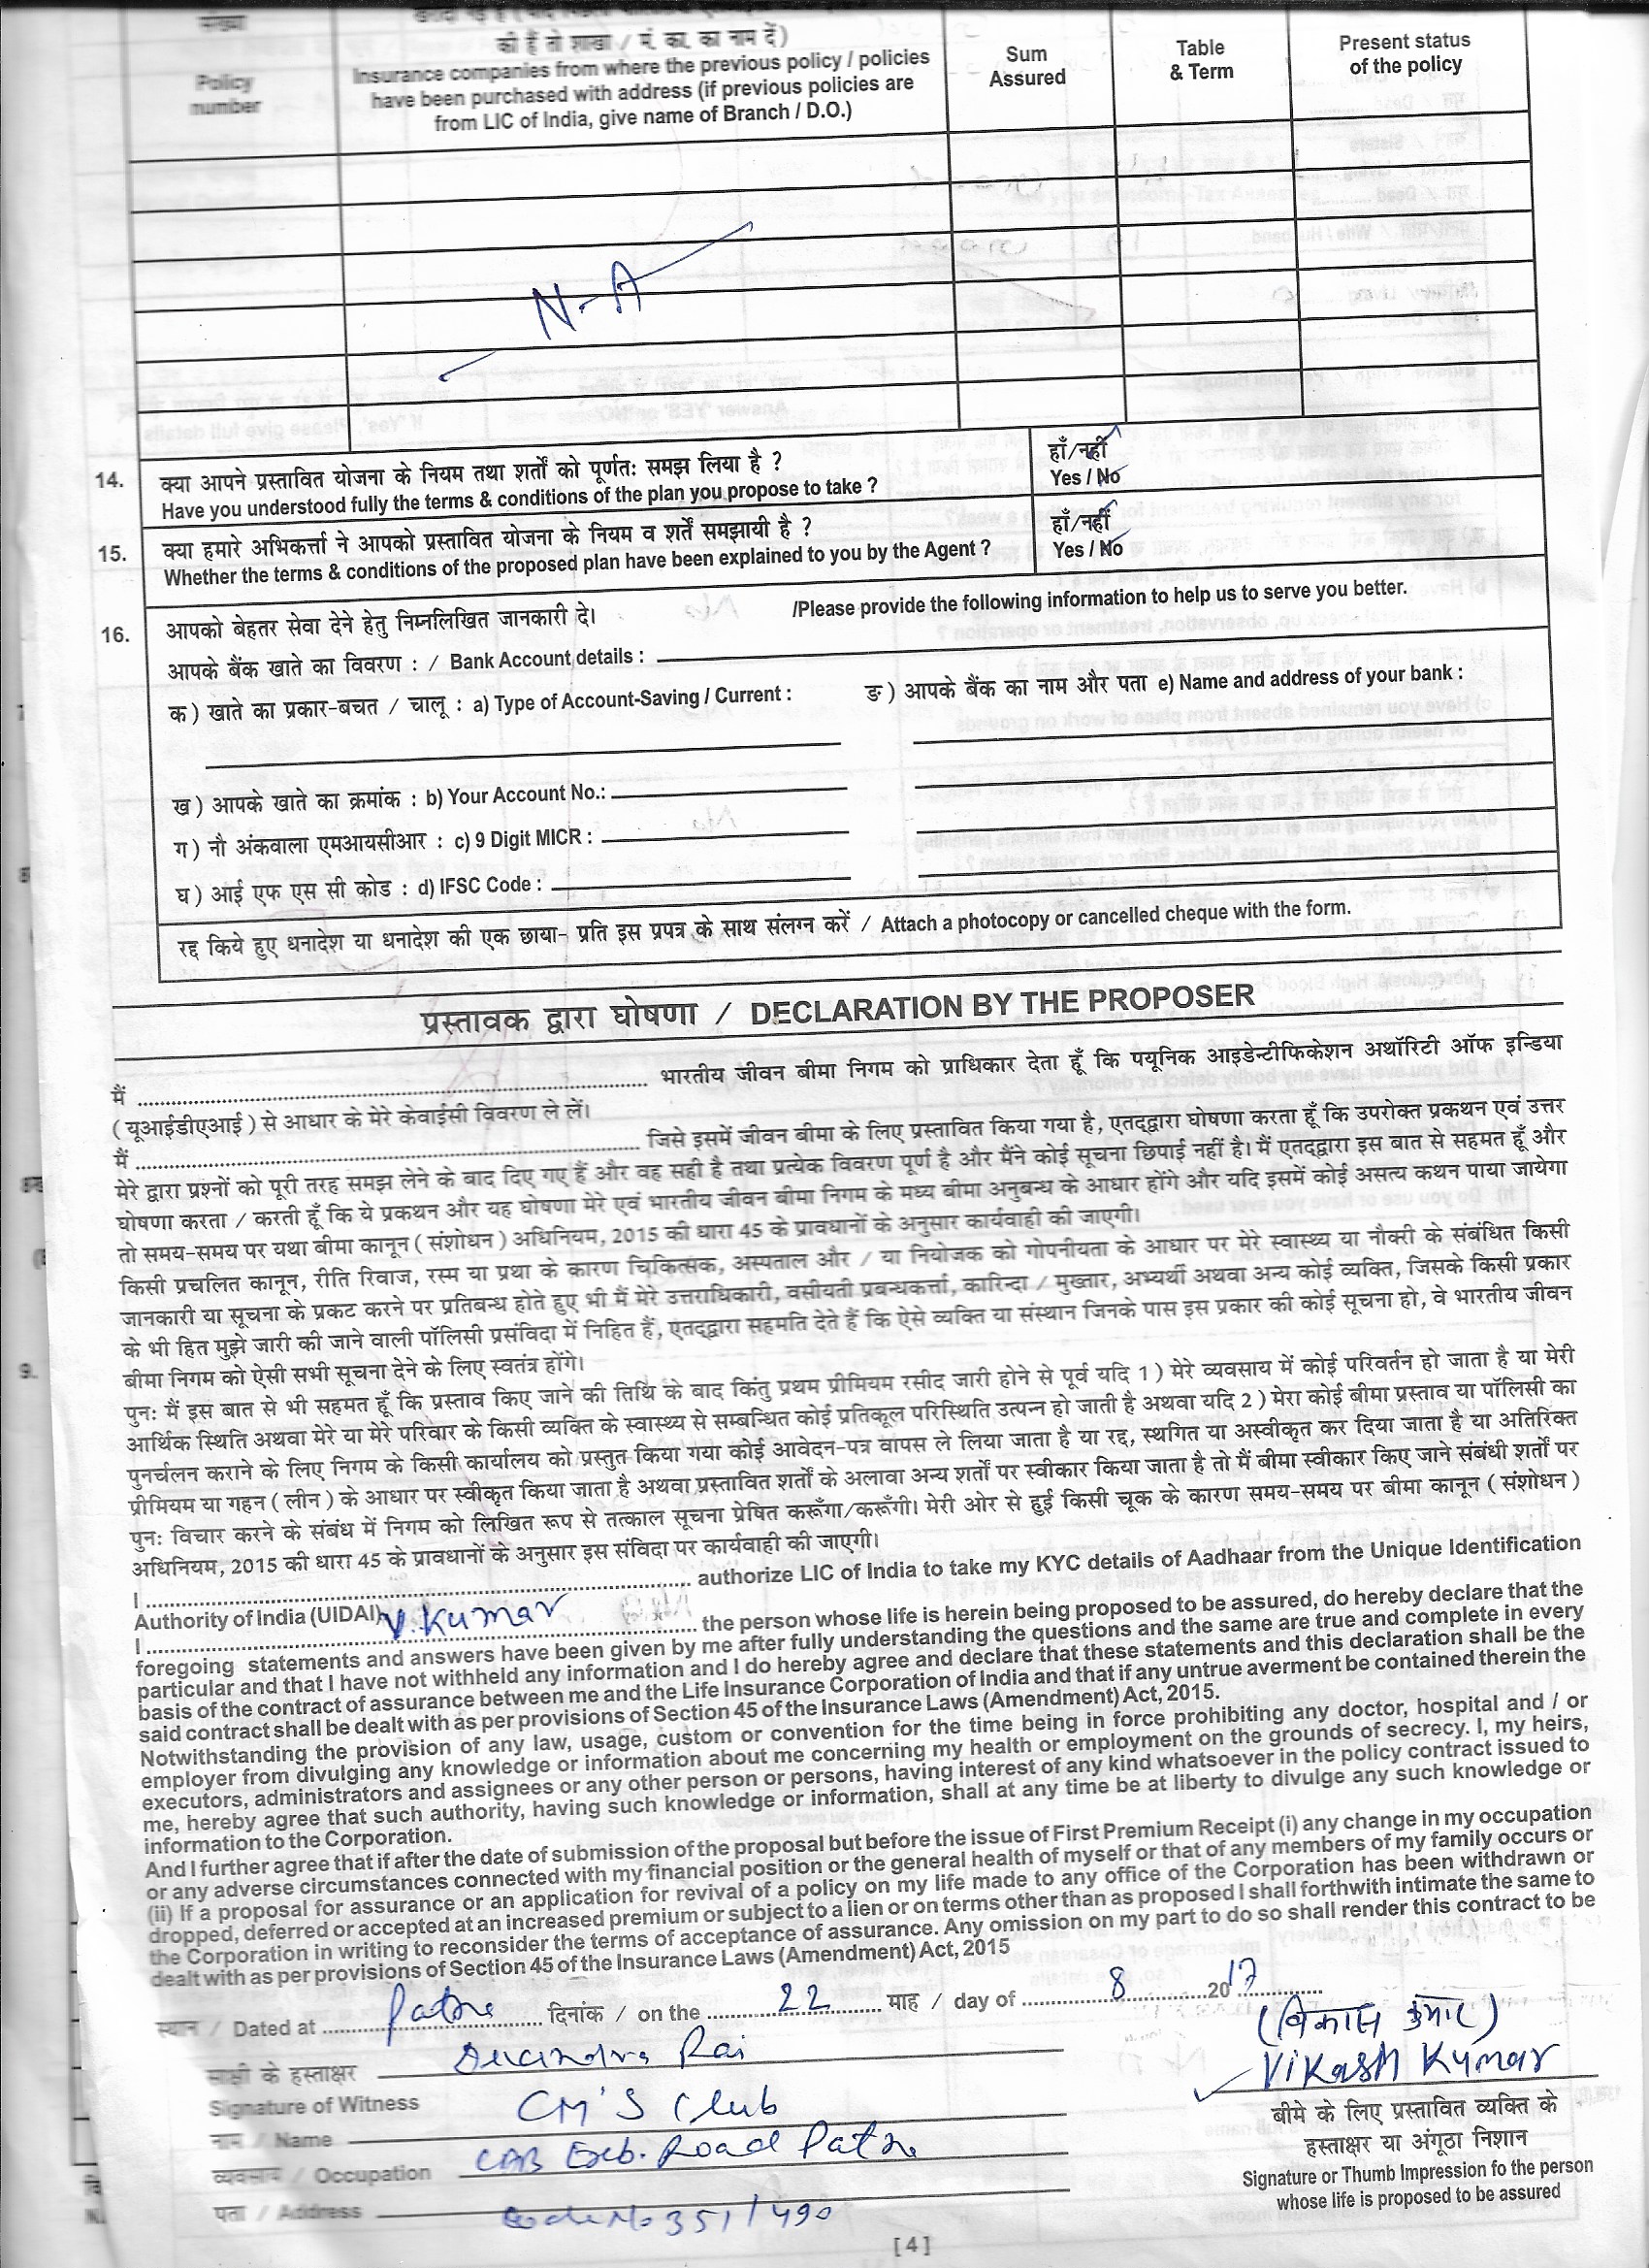 संख्या
की हैं तो शाखा / मं. का. का नाम दें)
Policy
number
Insurance companies from where the previous policy / policies
have been purchased with address (if previous policies are
from LIC of India, give name of Branch / D.O.)
Sum
Assured
Table
& Term
Present status
of the policy
N-A
14. क्या आपने प्रस्तावित योजना के नियम तथा शर्तों को पूर्णतः समझ लिया है ? हाँ/नहीं
Have you understood fully the terms & conditions of the plan you propose to take ? Yes / No
15. क्या हमारे अभिकर्त्ता ने आपको प्रस्तावित योजना के नियम व शर्ते समझायी है ? हाँ/नहीं
Whether the terms & conditions of the proposed plan have been explained to you by the Agent ? Yes / No
16. आपको बेहतर सेवा देने हेतु निम्नलिखित जानकारी दे। /Please provide the following information to help us to serve you better.
आपके बैंक खाते का विवरण : / Bank Account details :
क) खाते का प्रकार-बचत / चालू : a) Type of Account-Saving / Current : ङ) आपके बैंक का नाम और पता e) Name and address of your bank :
ख) आपके खाते का क्रमांक : b) Your Account No.:
ग) नौ अंकवाला एमआयसीआर : c) 9 Digit MICR :
घ) आई एफ एस सी कोड : d) IFSC Code :
रद्द किये हुए धनादेश या धनादेश की एक छाया- प्रति इस प्रपत्र के साथ संलग्न करें / Attach a photocopy or cancelled cheque with the form.
प्रस्तावक द्वारा घोषणा / DECLARATION BY THE PROPOSER
मैं .......... भारतीय जीवन बीमा निगम को प्राधिकार देता हूँ कि पयूनिक आइडेन्टीफिकेशन अथॉरिटी ऑफ इन्डिया
(यूआईडीएआई) से आधार के मेरे केवाईसी विवरण ले लें।
मैं .......... जिसे इसमें जीवन बीमा के लिए प्रस्तावित किया गया है, एतद्द्वारा घोषणा करता हूँ कि उपरोक्त प्रकथन एवं उत्तर
मेरे द्वारा प्रश्नों को पूरी तरह समझ लेने के बाद दिए गए हैं और वह सही है तथा प्रत्येक विवरण पूर्ण है और मैंने कोई सूचना छिपाई नहीं है। मैं एतद्द्वारा इस बात से सहमत हूँ और
घोषणा करता / करती हूँ कि ये प्रकथन और यह घोषणा मेरे एवं भारतीय जीवन बीमा निगम के मध्य बीमा अनुबन्ध के आधार होंगे और यदि इसमें कोई असत्य कथन पाया जायेगा
तो समय-समय पर यथा बीमा कानून (संशोधन) अधिनियम, 2015 की धारा 45 के प्रावधानों के अनुसार कार्यवाही की जाएगी।
किसी प्रचलित कानून, रीति रिवाज, रस्म या प्रथा के कारण चिकित्सक, अस्पताल और / या नियोजक को गोपनीयता के आधार पर मेरे स्वास्थ्य या नौकरी के संबंधित किसी
जानकारी या सूचना के प्रकट करने पर प्रतिबन्ध होते हुए भी मैं मेरे उत्तराधिकारी, वसीयती प्रबन्धकर्त्ता, कारिन्दा / मुख्तार, अभ्यर्थी अथवा अन्य कोई व्यक्ति, जिसके किसी प्रकार
के भी हित मुझे जारी की जाने वाली पॉलिसी प्रसंविदा में निहित हैं, एतद्द्वारा सहमति देते हैं कि ऐसे व्यक्ति या संस्थान जिनके पास इस प्रकार की कोई सूचना हो, वे भारतीय जीवन
बीमा निगम को ऐसी सभी सूचना देने के लिए स्वतंत्र होंगे।
पुनः मैं इस बात से भी सहमत हूँ कि प्रस्ताव किए जाने की तिथि के बाद किंतु प्रथम प्रीमियम रसीद जारी होने से पूर्व यदि 1) मेरे व्यवसाय में कोई परिवर्तन हो जाता है या मेरी
आर्थिक स्थिति अथवा मेरे या मेरे परिवार के किसी व्यक्ति के स्वास्थ्य से सम्बन्धित कोई प्रतिकूल परिस्थिति उत्पन्न हो जाती है अथवा यदि 2) मेरा कोई बीमा प्रस्ताव या पॉलिसी का
पुनर्चलन कराने के लिए निगम के किसी कार्यालय को प्रस्तुत किया गया कोई आवेदन-पत्र वापस ले लिया जाता है या रद्द, स्थगित या अस्वीकृत कर दिया जाता है या अतिरिक्त
प्रीमियम या गहन (लीन) के आधार पर स्वीकृत किया जाता है अथवा प्रस्तावित शर्तों के अलावा अन्य शर्तों पर स्वीकार किया जाता है तो मैं बीमा स्वीकार किए जाने संबंधी शर्तों पर
पुनः विचार करने के संबंध में निगम को लिखित रूप से तत्काल सूचना प्रेषित करूँगा/करूँगी। मेरी ओर से हुई किसी चूक के कारण समय-समय पर बीमा कानून (संशोधन)
अधिनियम, 2015 की धारा 45 के प्रावधानों के अनुसार इस संविदा पर कार्यवाही की जाएगी।
I .......... authorize LIC of India to take my KYC details of Aadhaar from the Unique Identification
Authority of India (UIDAI)
I .......... V. Kumar .......... the person whose life is herein being proposed to be assured, do hereby declare that the
foregoing statements and answers have been given by me after fully understanding the questions and the same are true and complete in every
particular and that I have not withheld any information and I do hereby agree and declare that these statements and this declaration shall be the
basis of the contract of assurance between me and the Life Insurance Corporation of India and that if any untrue averment be contained therein the
said contract shall be dealt with as per provisions of Section 45 of the Insurance Laws (Amendment) Act, 2015.
Notwithstanding the provision of any law, usage, custom or convention for the time being in force prohibiting any doctor, hospital and / or
employer from divulging any knowledge or information about me concerning my health or employment on the grounds of secrecy. I, my heirs,
executors, administrators and assignees or any other person or persons, having interest of any kind whatsoever in the policy contract issued to
me, hereby agree that such authority, having such knowledge or information, shall at any time be at liberty to divulge any such knowledge or
information to the Corporation.
And I further agree that if after the date of submission of the proposal but before the issue of First Premium Receipt (i) any change in my occupation
or any adverse circumstances connected with my financial position or the general health of myself or that of any members of my family occurs or
(ii) If a proposal for assurance or an application for revival of a policy on my life made to any office of the Corporation has been withdrawn or
dropped, deferred or accepted at an increased premium or subject to a lien or on terms other than as proposed I shall forthwith intimate the same to
the Corporation in writing to reconsider the terms of acceptance of assurance. Any omission on my part to do so shall render this contract to be
dealt with as per provisions of Section 45 of the Insurance Laws (Amendment) Act, 2015
स्थान / Dated at Patna दिनांक / on the 22 माह / day of 8 2017
(विकास कुमार)
Vikash Kumar
साक्षी के हस्ताक्षर Rai
Signature of Witness CM'S Club
नाम / Name
व्यवसाय / Occupation CAB Exb. Road Patna
पता / Address Code No 351/490
बीमे के लिए प्रस्तावित व्यक्ति के
हस्ताक्षर या अंगूठा निशान
Signature or Thumb Impression fo the person
whose life is proposed to be assured
[4]